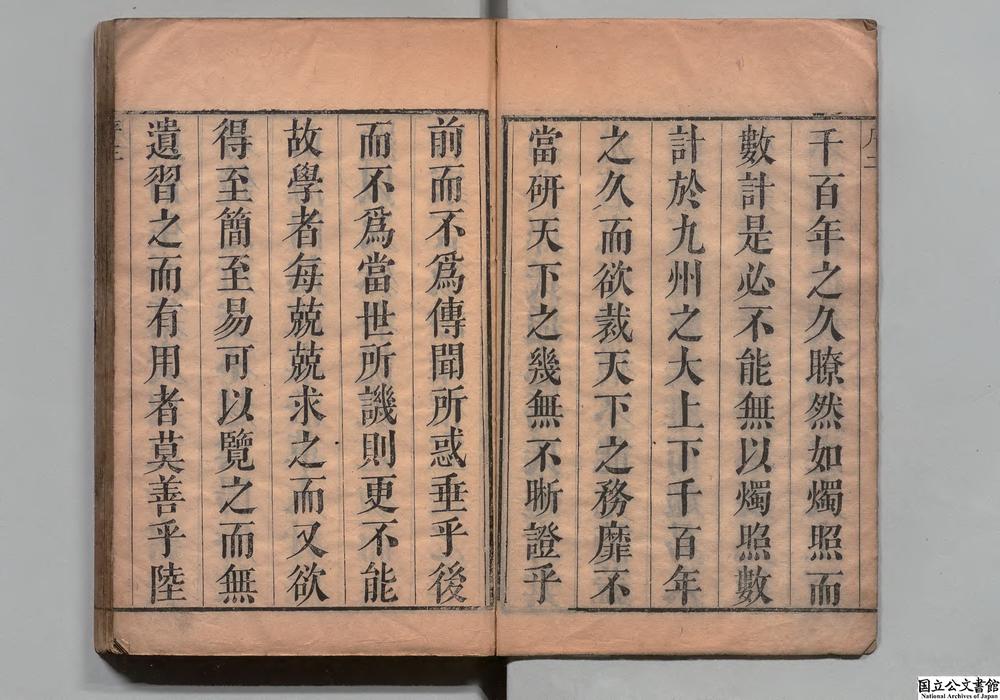 千百年之久瞭然如燭照而
數計是必不能無以燭照數
計於九州之大上下千百年
之久而欲裁天下之務靡不
當研天下之幾無不晣證乎
前而不爲傳聞所惑垂乎後
而不爲當世所譏則更不能
故學者每兢兢求之而又欲
得至簡至易可以覽之而無
遺習之而有用者莫善乎陸
国立公文書館
National Archives of Japan